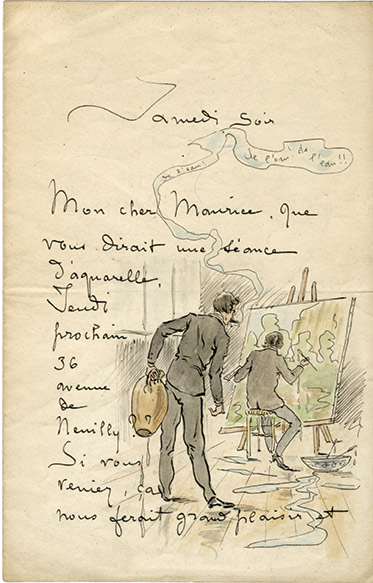 Samedi Soir
de l'eau! de l'eau! de l'eau!!
Mon cher Maurice, que
vous dirait une séance
d'aquarelle,
Jeudi
prochain
36
avenue
de
Neuilly
Si vous
veniez, ça
nous ferait grand plaisir et